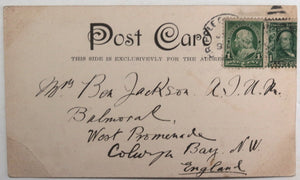 Post Car
THIS SIDE IS EXCLUSIVELY FOR THE ADDRE
Mrs Ben Jackson. A.I.U.M.
Balmoral,
West Promenade
Colwyn Bay. N.W.
England